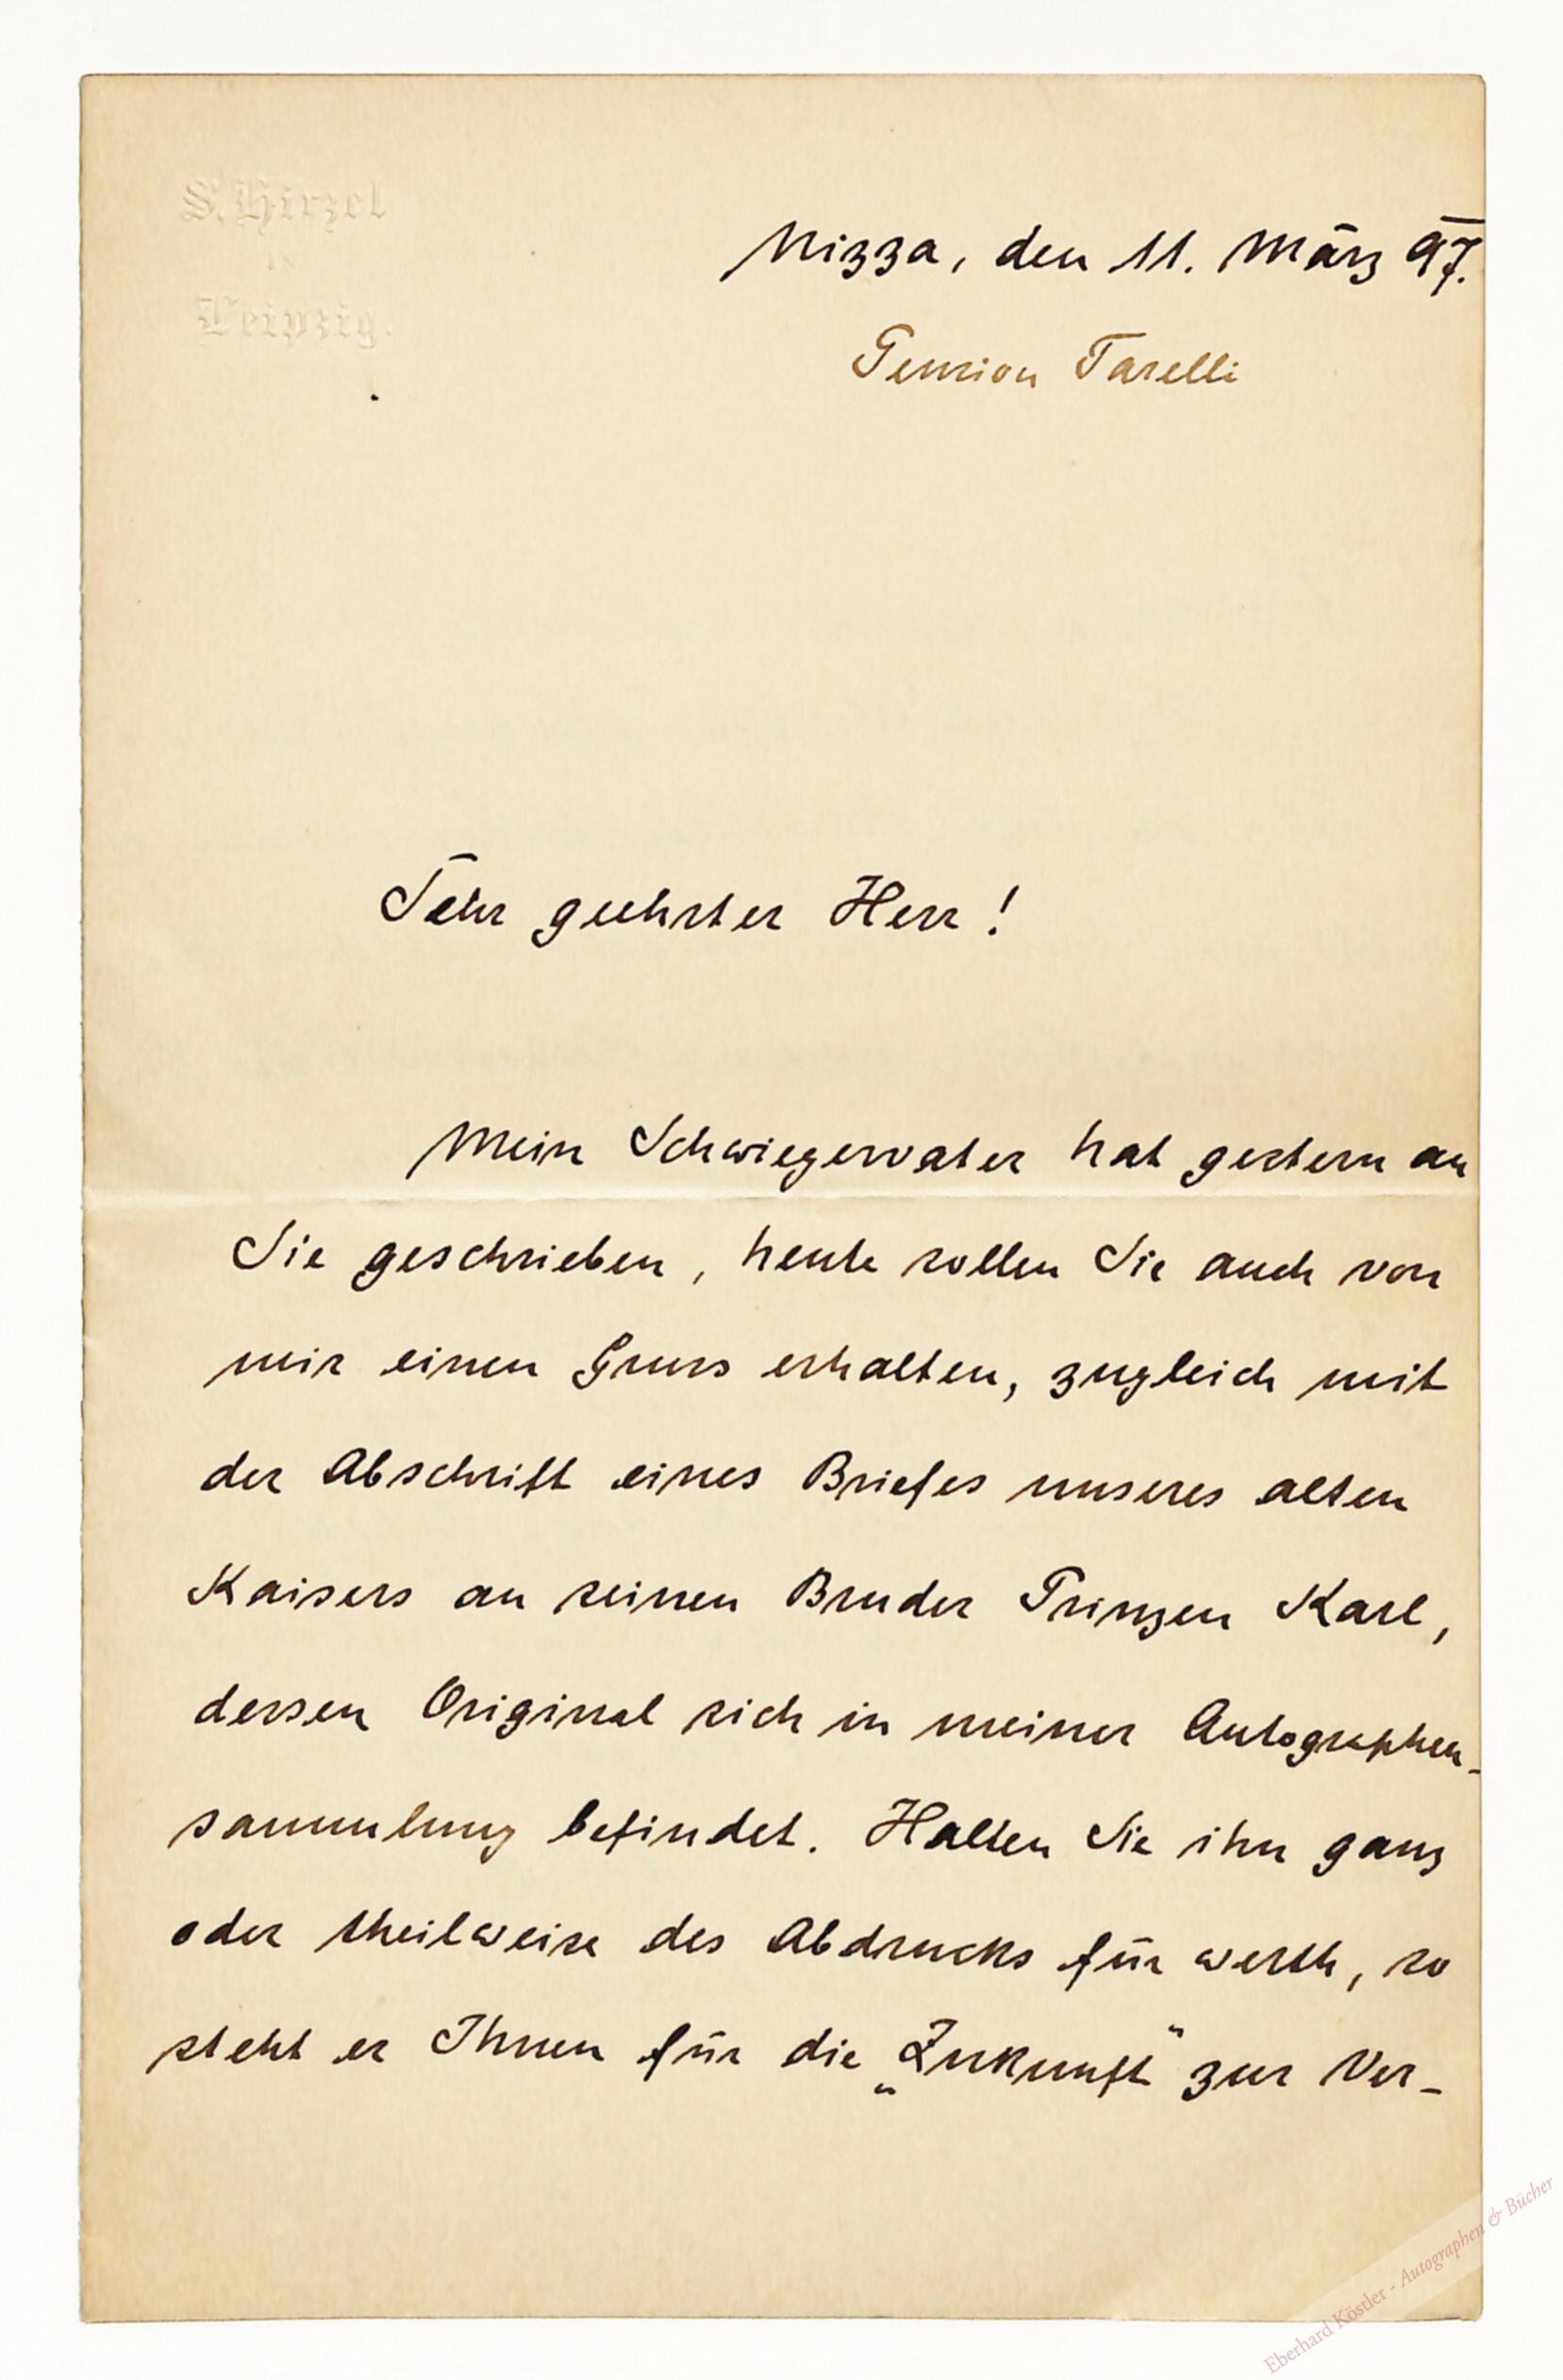 S. Hirzel
in
Leipzig.
Nizza, den 11. März 97.
Pension Tarelli
Sehr geehrter Herr!
Mein Schwiegervater hat gestern an
Sie geschrieben, heute sollen Sie auch von
mir einen Gruss erhalten, zugleich mit
der Abschrift eines Briefes unseres alten
Kaisers an seinen Bruder Prinzen Karl,
dessen Original sich in meiner Autographen-
sammlung befindet. Halten Sie ihn ganz
oder theilweise des Abdrucks für werth, so
steht er Ihnen für die „Zukunft“ zur Ver-
Eberhard Köstler - Autographen & Bücher